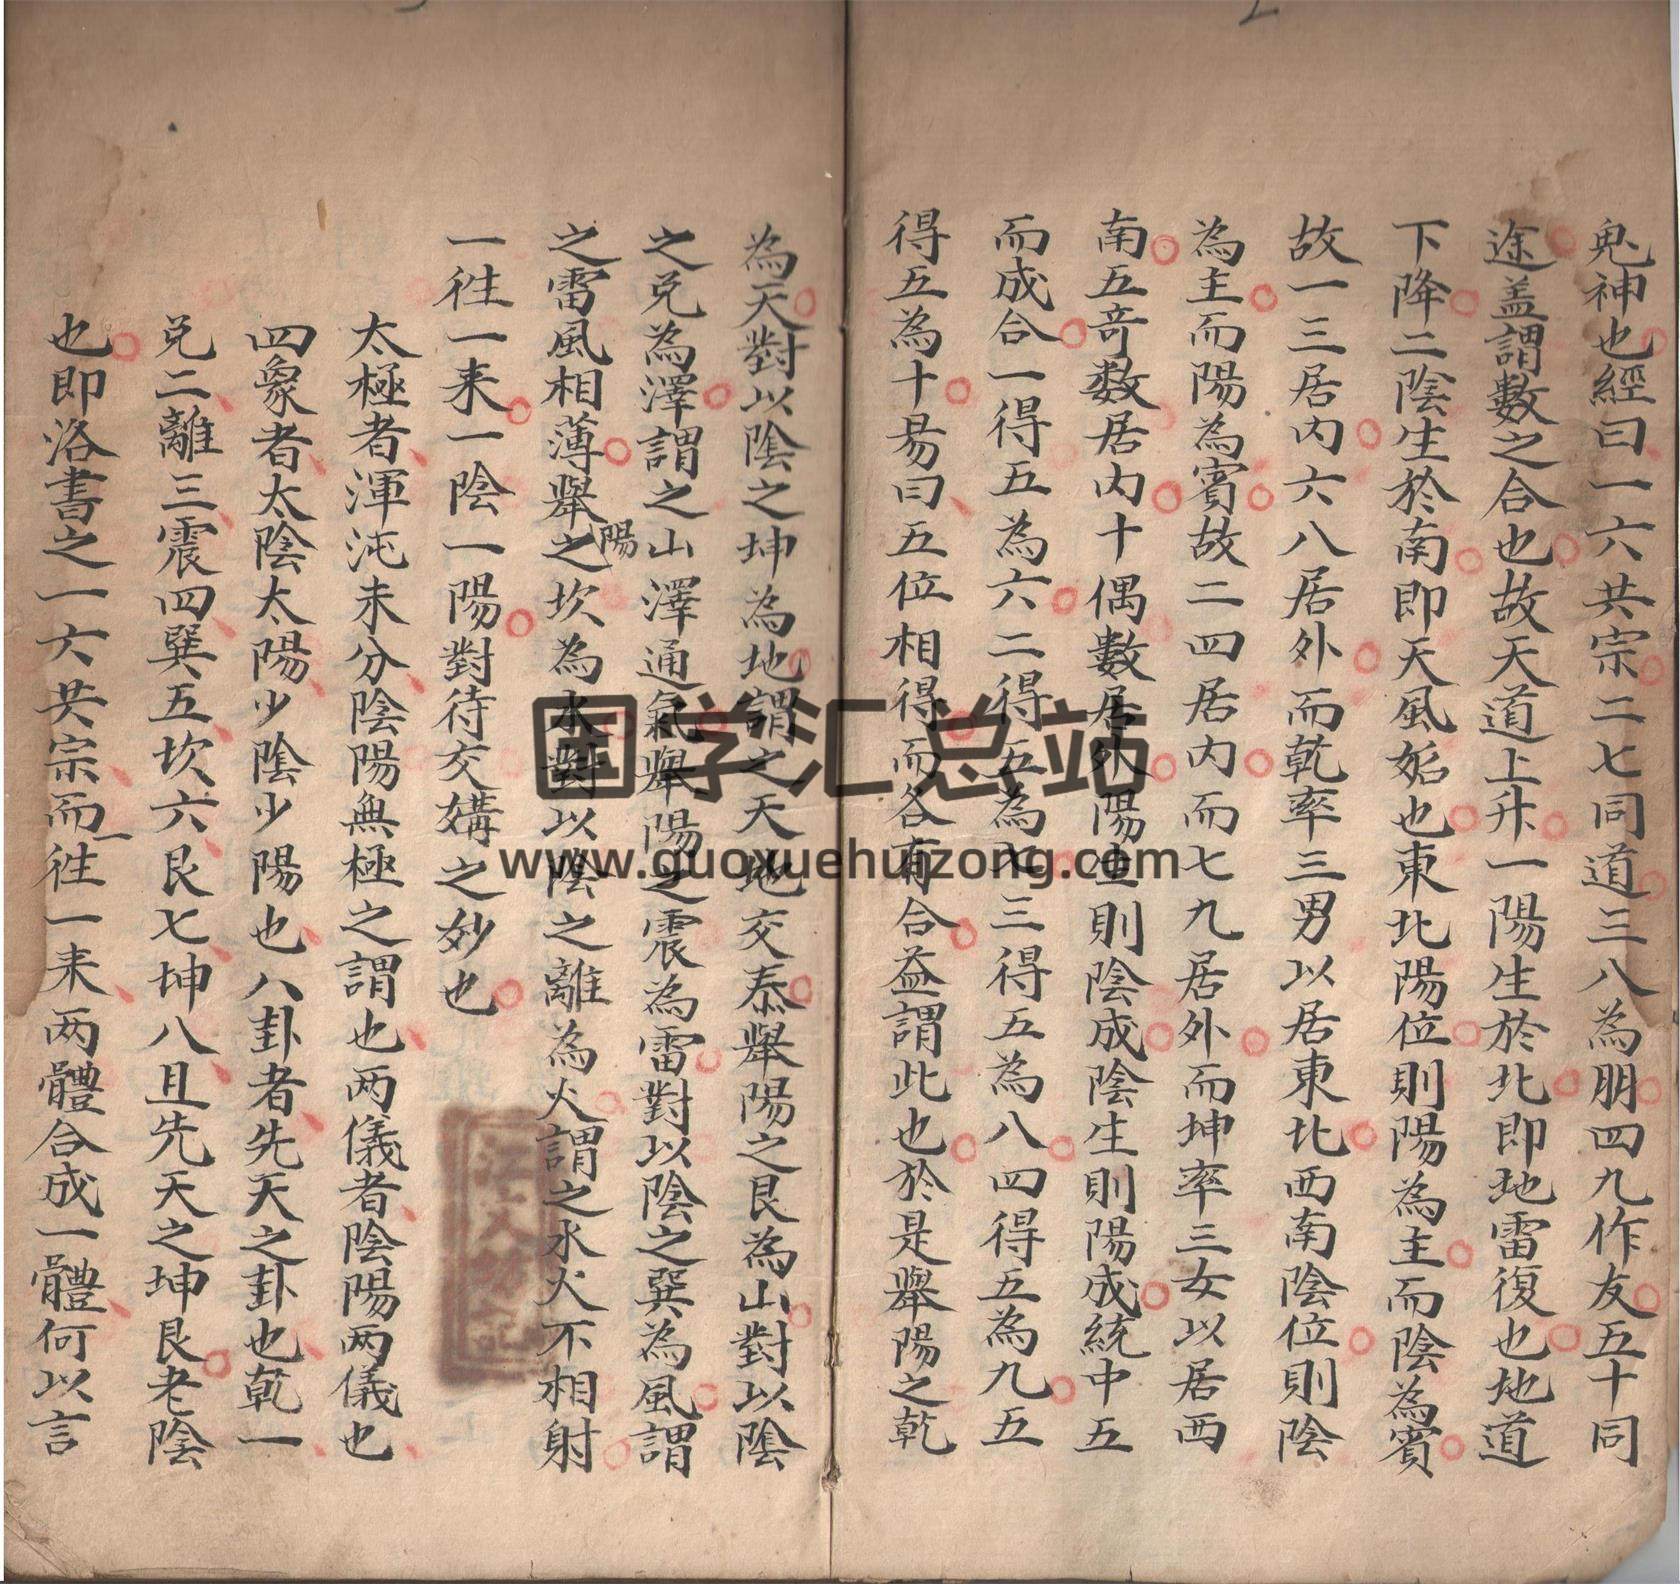 鬼神也經曰一六共宗二七同道三八為朋四九作友五十同
途盖謂數之合也故天道上升一陽生於北即地雷復也地道
下降二陰生於南即天風姤也東北陽位則陽為主而陰為賓
故一三居内六八居外而乾率三男以居東北西南陰位則陰
為主而陽為賓故二四居内而七九居外而坤率三女以居西
南五竒数居内十偶數居外陽生則陰成陰生則陽成統中五
而成合一得五為六二得五為七三得五為八四得五為九五
得五為十昜曰五位相得而各有合益謂此也於是舉陽之乾
為天對以陰之坤為地謂之天地交泰舉陽之艮為山對以陰
之兑為澤謂之山澤通氣舉陽之震為雷對以陰之巽為風謂
之雷風相薄舉陽之坎為水對以陰之離為火謂之水火不相射
一徃一来一陰一陽對待交媾之妙也
太極者渾沌未分陰陽無極之謂也两儀者陰陽两儀也
四象者太陰太陽少陰少陽也八卦者先天之卦也乾一
兑二離三震四巽五坎六艮七坤八且先天之坤艮老陰
也即洛書之一六共宗而一徃一来两體合成一體何以言
国学汇总站
www.guoxuehuizong.com